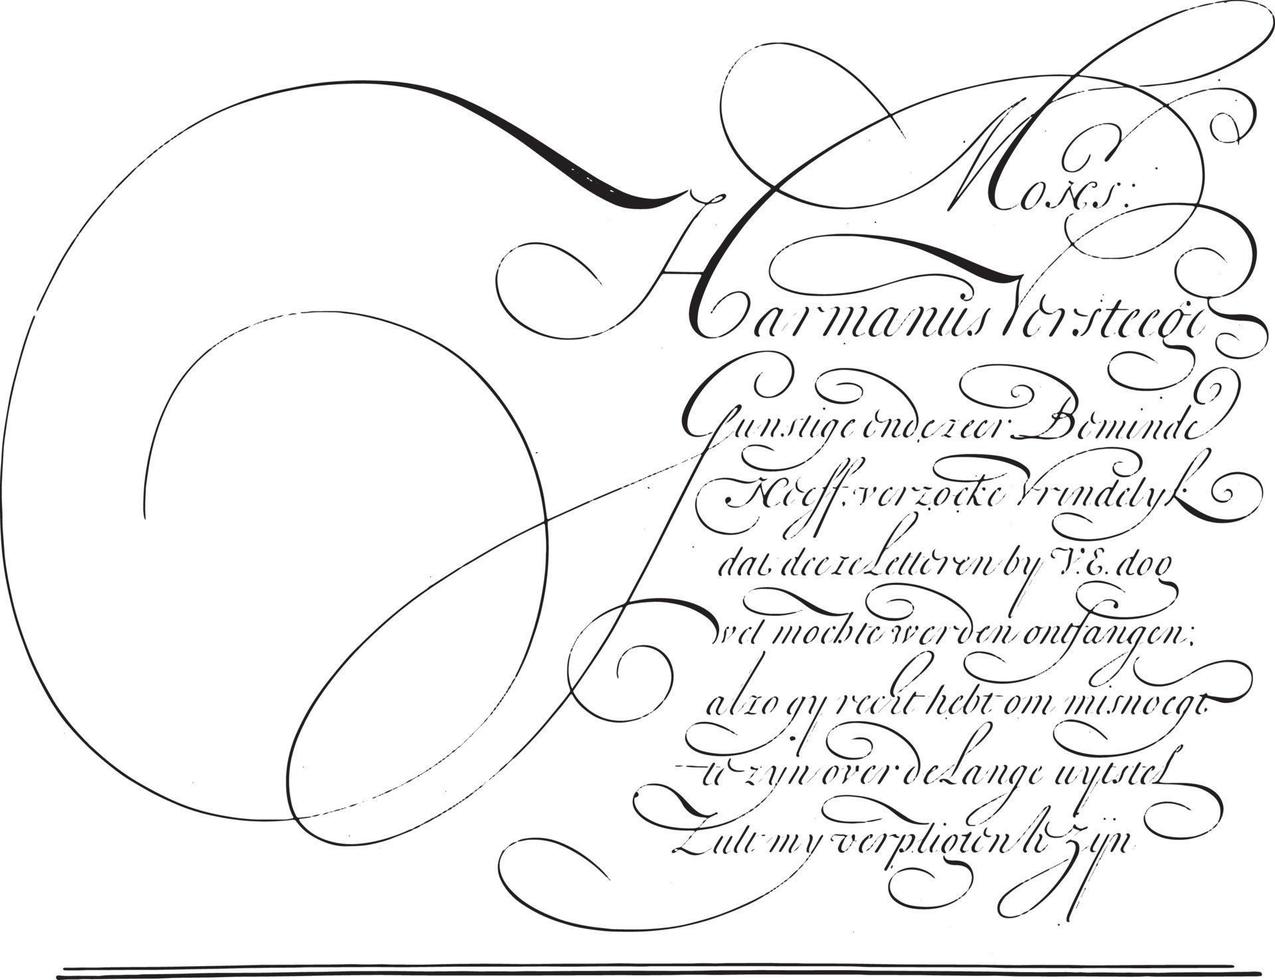 Mons:
Harmanüs Versteege
Gunstige ende zeer Beminde
Neeff: verzoeke Vrindelyk
dat deeze Letteren by V.E. doo
wel mochte werden ontfangen:
alzo gy recht hebt om misnoegt
te zyn over de Lange uytstel
Zult my verpligten te zijn